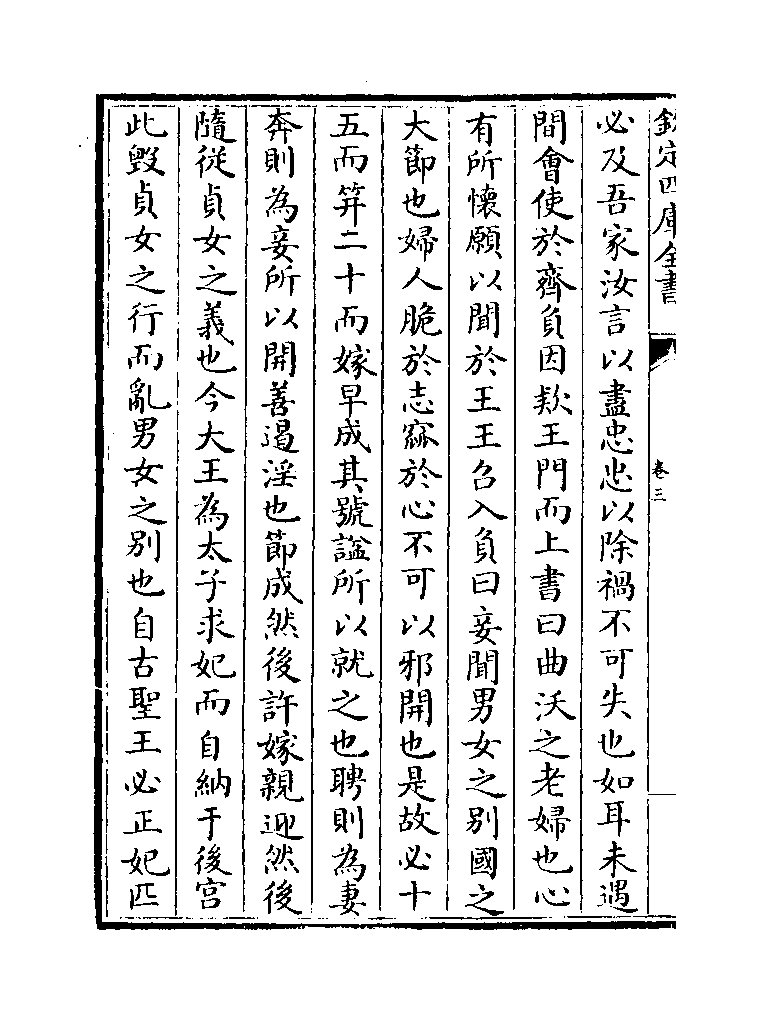 欽定四庫全書
卷三
必及吾家汝言以盡忠忠以除禍不可失也如耳未遇
間會使於齊負因欵王門而上書曰曲沃之老婦也心
有所懷願以聞於王王召入負曰妾聞男女之別國之
大節也婦人脆於志窳於心不可以邪開也是故必十
五而笄二十而嫁早成其號諡所以就之也聘則為妻
奔則為妾所以開善遏淫也節成然後許嫁親迎然後
隨從貞女之義也今大王為太子求妃而自納于後宮
此毀貞女之行而亂男女之別也自古聖王必正妃匹